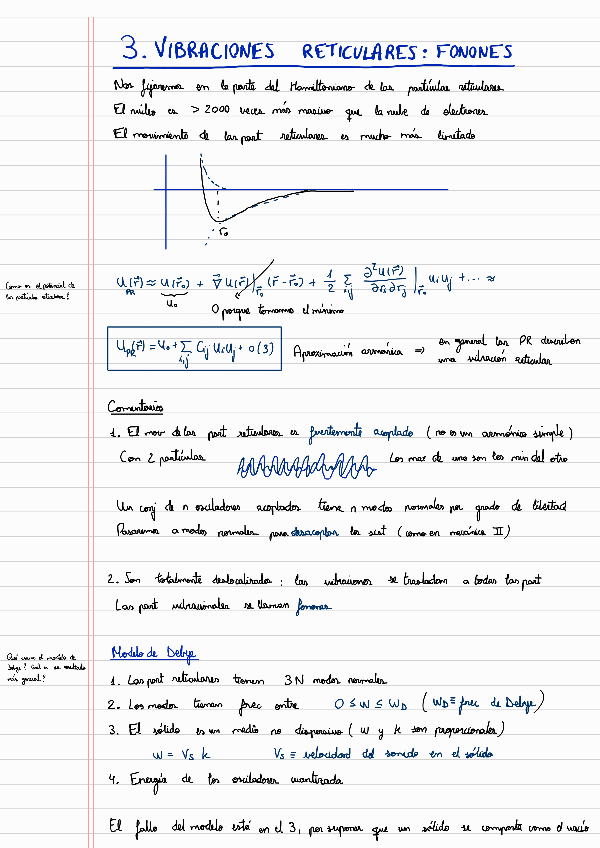 3. VIBRACIONES RETICULARES: FONONES
Nos fijaremos en la parte del Hamiltoniano de las partículas reticulares
El núcleo es > 2000 veces más masivo que la nube de electrones
El movimiento de las part reticulares es mucho más limitado
r₀
Como es el potencial de
las partículas reticulares?
U_PR(r⃗) ≈ U(r⃗₀) + ∇⃗U(r⃗)|_r⃗₀ (r⃗-r⃗₀) + 1/2 Σ_ij ∂²U(r⃗)/∂r_i∂r_j |_r⃗₀ u_i u_j + ... ≈
U₀
0 porque tomamos el mínimo
U_PR(r⃗) = U₀ + Σ_i,j C_ij u_i u_j + O(3)
Aproximación armónica ⇒ en general las PR describen
una vibración reticular
Comentarios
1. El mov de las part reticulares es fuertemente acoplado (no es un armónico simple)
Con 2 partículas
Los max de uno son los min del otro
Un conj de n osciladores acoplados tiene n modos normales por grado de libertad
Pasaremos a modos normales para desacoplar los sist (como en mecánica II)
2. Son totalmente deslocalizadas: las vibraciones se trasladan a todas las part
Las part vibracionales se llaman fonones
Modelo de Debye
1. Las part reticulares tienen 3N modos normales
2. Los modos tienen frec entre 0 ≤ ω ≤ ω_D (ω_D ≡ frec de Debye)
3. El sólido es un medio no dispersivo (ω y k son proporcionales)
ω = V_s k V_s ≡ velocidad del sonido en el sólido
4. Energía de los osciladores cuantizada
El fallo del modelo está en el 3, por suponer que un sólido se comporta como el vacío